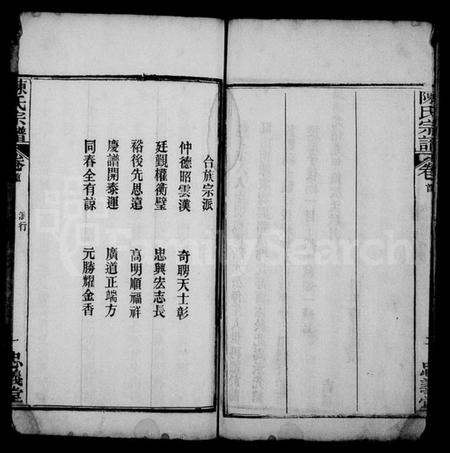 陳氏宗譜
卷
忠義堂
合族宗派
仲德昭雲漢 奇聘天士彰
廷觀權衡璧 忠興宏志長
裕後先恩遠 高明順福祥
慶譜開泰運 廣道正端方
同春全有諒 元勝耀金香
陳氏宗譜
卷
派行
一
忠義堂
FamilySearch